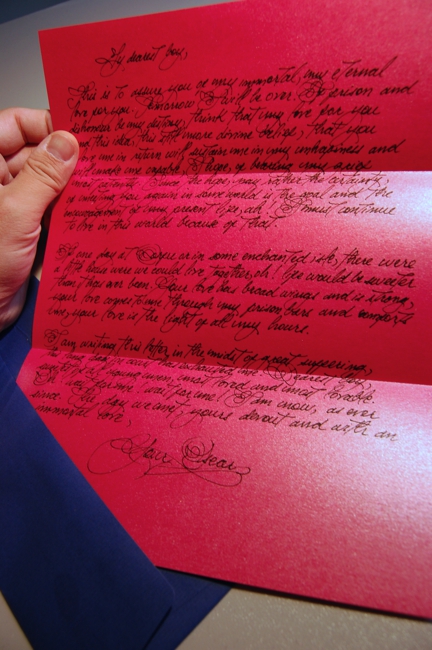 My dearest boy,
This is to assure you of my immortal, my eternal
love for you. Tomorrow all will be over. If prison and
dishonour be my destiny, think that my love for you
and this idea, this still more divine belief, that you
love me in return will sustain me in my unhappiness and
will make me capable, I hope, of bearing my grief
most patiently. Since the hope, nay rather the certainty,
of meeting you again in some world is the goal and the
encouragement of my present life, ah! I must continue
to live in this world because of that.
If one day at Corfu or in some enchanted isle, there were
a little house were we could live together, oh! life would be sweeter
than it has ever been. Your love has broad wings and is strong,
your love comes to me through my prison bars and comforts
me, your love is the light of all my hours.
I am writing this letter in the midst of great suffering;
Dearest boy,
sweetest of all young men, most loved and most lovable.
Oh! wait for me! wait for me! I am now, as ever
since the day we met, yours devout and with an
immortal love,
Your Oscar